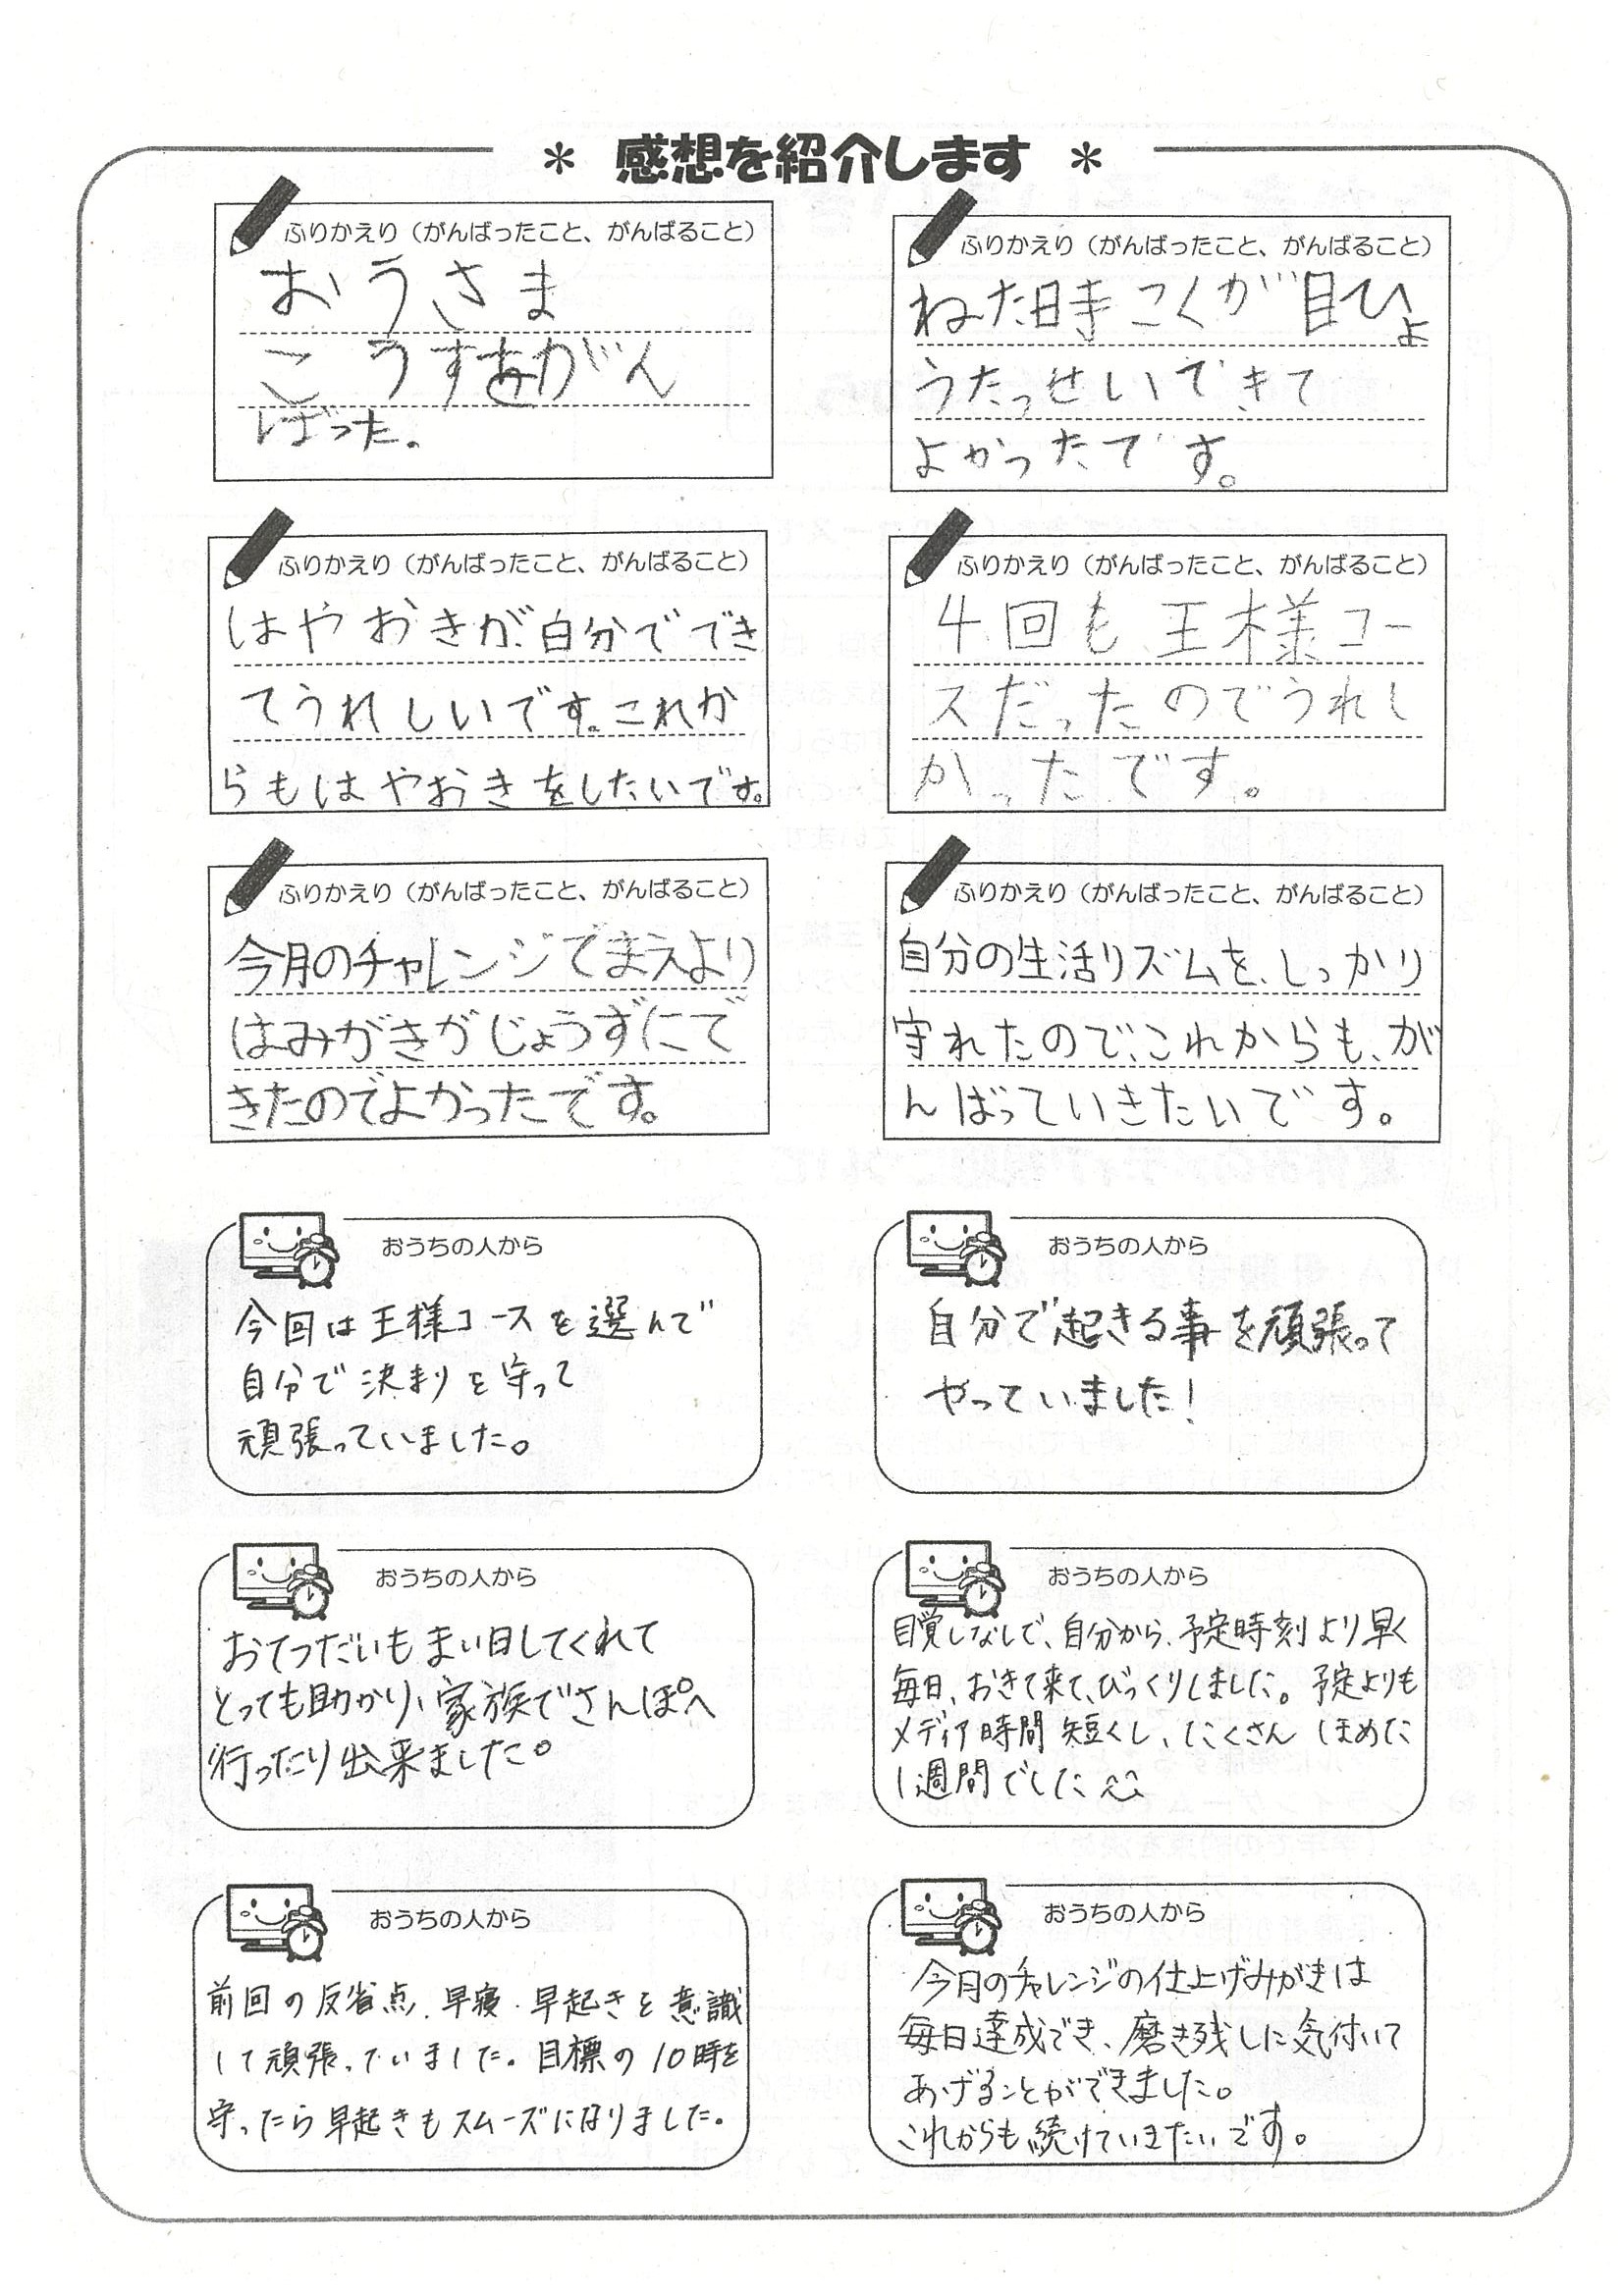 * 感想を紹介します *
ふりかえり（がんばったこと、がんばること）
おうさま
こうすをがん
ばった。
ふりかえり（がんばったこと、がんばること）
ねた時こくが目ひょ
うたっせいできて
よかったです。
ふりかえり（がんばったこと、がんばること）
はやおきが、自分ででき
てうれしいです。これか
らもはやおきをしたいです。
ふりかえり（がんばったこと、がんばること）
4回も、王様コー
スだったのでうれし
かったです。
ふりかえり（がんばったこと、がんばること）
今月のチャレンジでまえより
はみがきがじょうずにで
きたのでよかったです。
ふりかえり（がんばったこと、がんばること）
自分の生活リズムを、しっかり
守れたので、これからも、が
んばっていきたいです。
おうちの人から
今回は王様コースを選んで
自分で決まりを守って
頑張っていました。
おうちの人から
自分で起きる事を頑張って
やっていました！
おうちの人から
おてつだいもまい日してくれて
とっても助かり、家族でさんぽへ
行ったり出来ました。
おうちの人から
目覚しなしで、自分から、予定時刻より早く
毎日、おきて来て、びっくりしました。予定よりも
メディア時間短くし、たくさんほめた
1週間でした^^
おうちの人から
前回の反省点、早寝・早起きを意識
して頑張っていました。目標の10時を
守ったら早起きもスムーズになりました。
おうちの人から
今月のチャレンジの仕上げみがきは
毎日達成でき、磨き残しに気付いて
あげることができました。
これからも続けていきたいです。